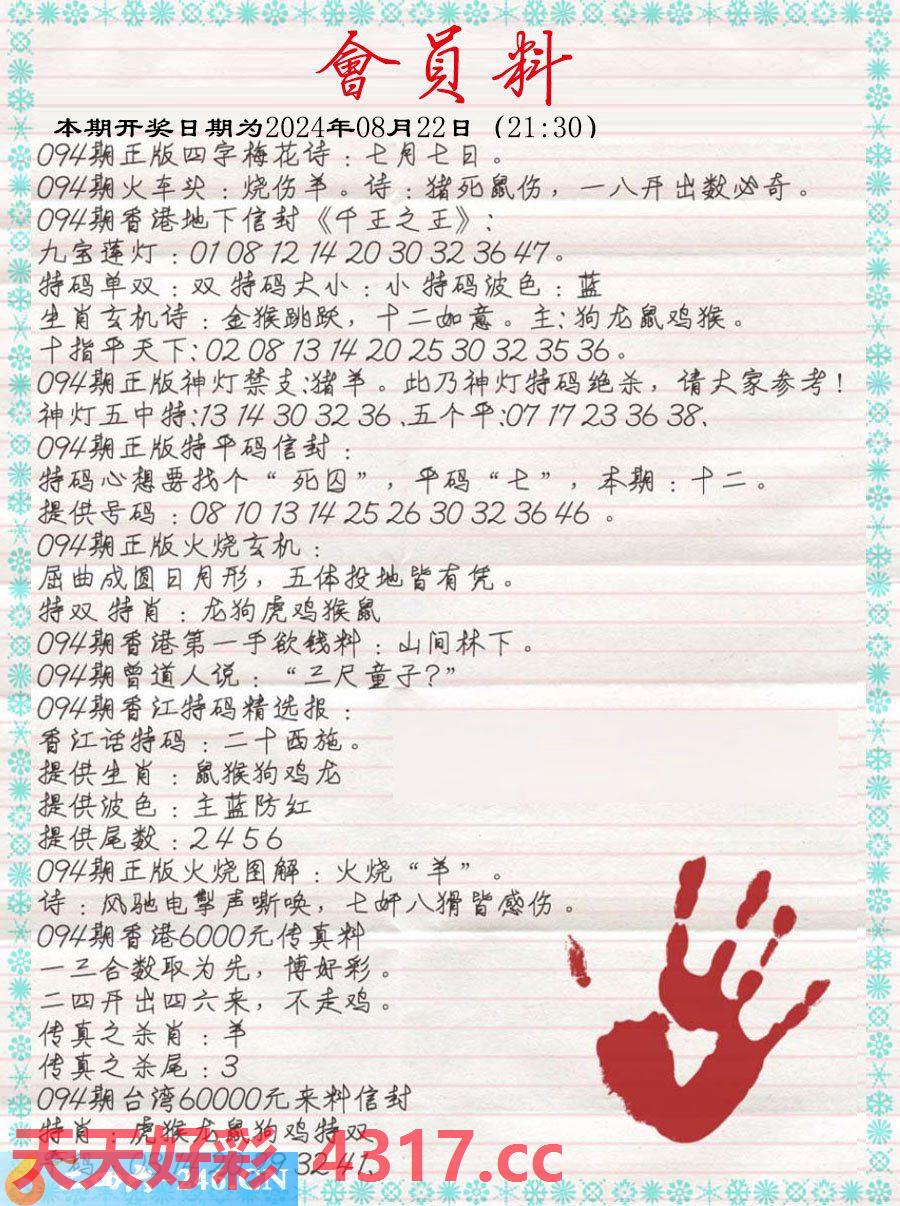 會員料
本期开奖日期为2024年08月22日（21:30）
094期正版四字梅花诗：七月七日。
094期火车头：烧伤羊。诗：猪死鼠伤，一八开出数必奇。
094期香港地下信封《千王之王》：
九宝莲灯：01 08 12 14 20 30 32 36 47。
特码单双：双 特码大小：小 特码波色：蓝
生肖玄机诗：金猴跳跃，十二如意。主：狗龙鼠鸡猴。
十指平天下：02 08 13 14 20 25 30 32 35 36。
094期正版神灯禁支：猪羊。此乃神灯特码绝杀，请大家参考！
神灯五中特：13 14 30 32 36、五个平：07 17 23 36 38、
094期正版特平码信封：
特码心想要找个“死囚”，平码“七”，本期：十二。
提供号码：08 10 13 14 25 26 30 32 36 46 。
094期正版火烧玄机：
屈曲成圆日月形，五体投地皆有凭。
特双 特肖：龙狗虎鸡猴鼠
094期香港第一手欲钱料：山间林下。
094期曾道人说：“三尺童子？”
094期香江特码精选报：
香江话特码：二十西施。
提供生肖：鼠猴狗鸡龙
提供波色：主蓝防红
提供尾数：2 4 5 6
094期正版火烧图解：火烧“羊”。
诗：风驰电掣声嘶唤，七奸八猾皆感伤。
094期香港6000元传真料
一三合数取为先，博好彩。
二四开出四六来，不走鸡。
传真之杀肖：羊
传真之杀尾：3
094期台湾60000元来料信封
特肖：虎猴龙鼠狗鸡特双
32 41、
天天好彩 4317.cc